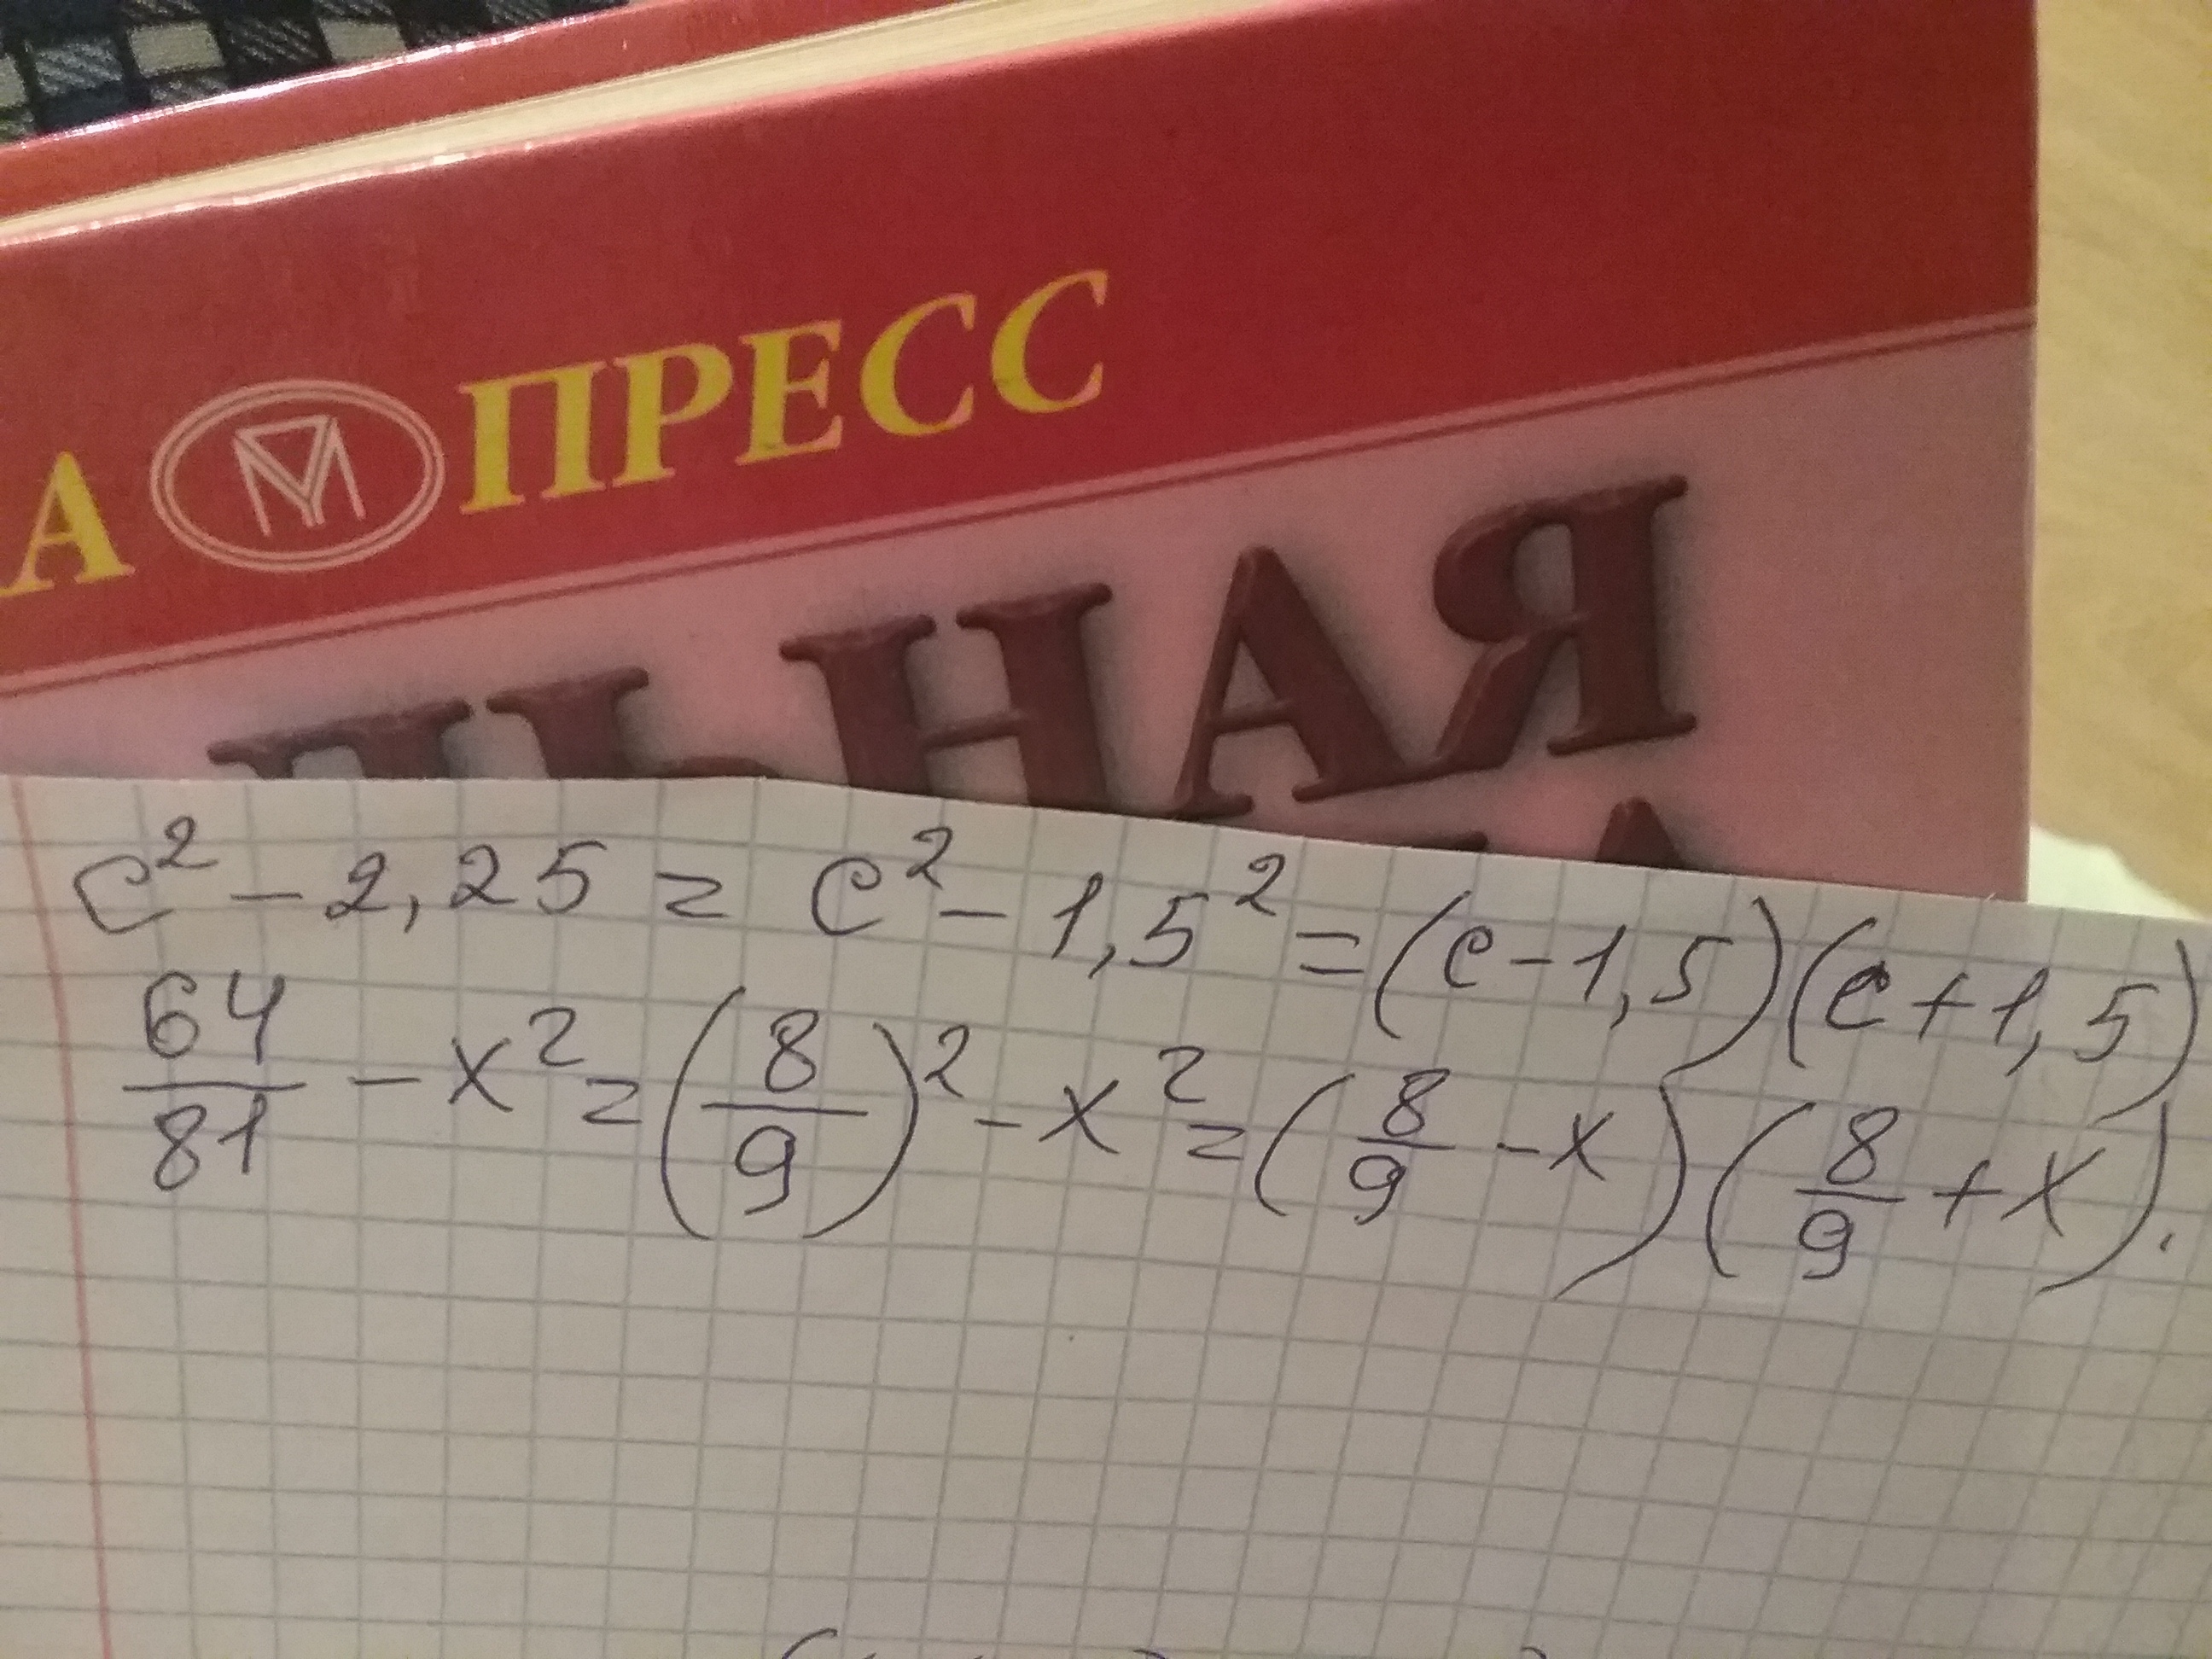 А ПРЕСС
ЛЬНАЯ
c² - 2,25 = c² - 1,5² = (c - 1,5)(c + 1,5)
64/81 - x² = (8/9)² - x² = (8/9 - x)(8/9 + x).